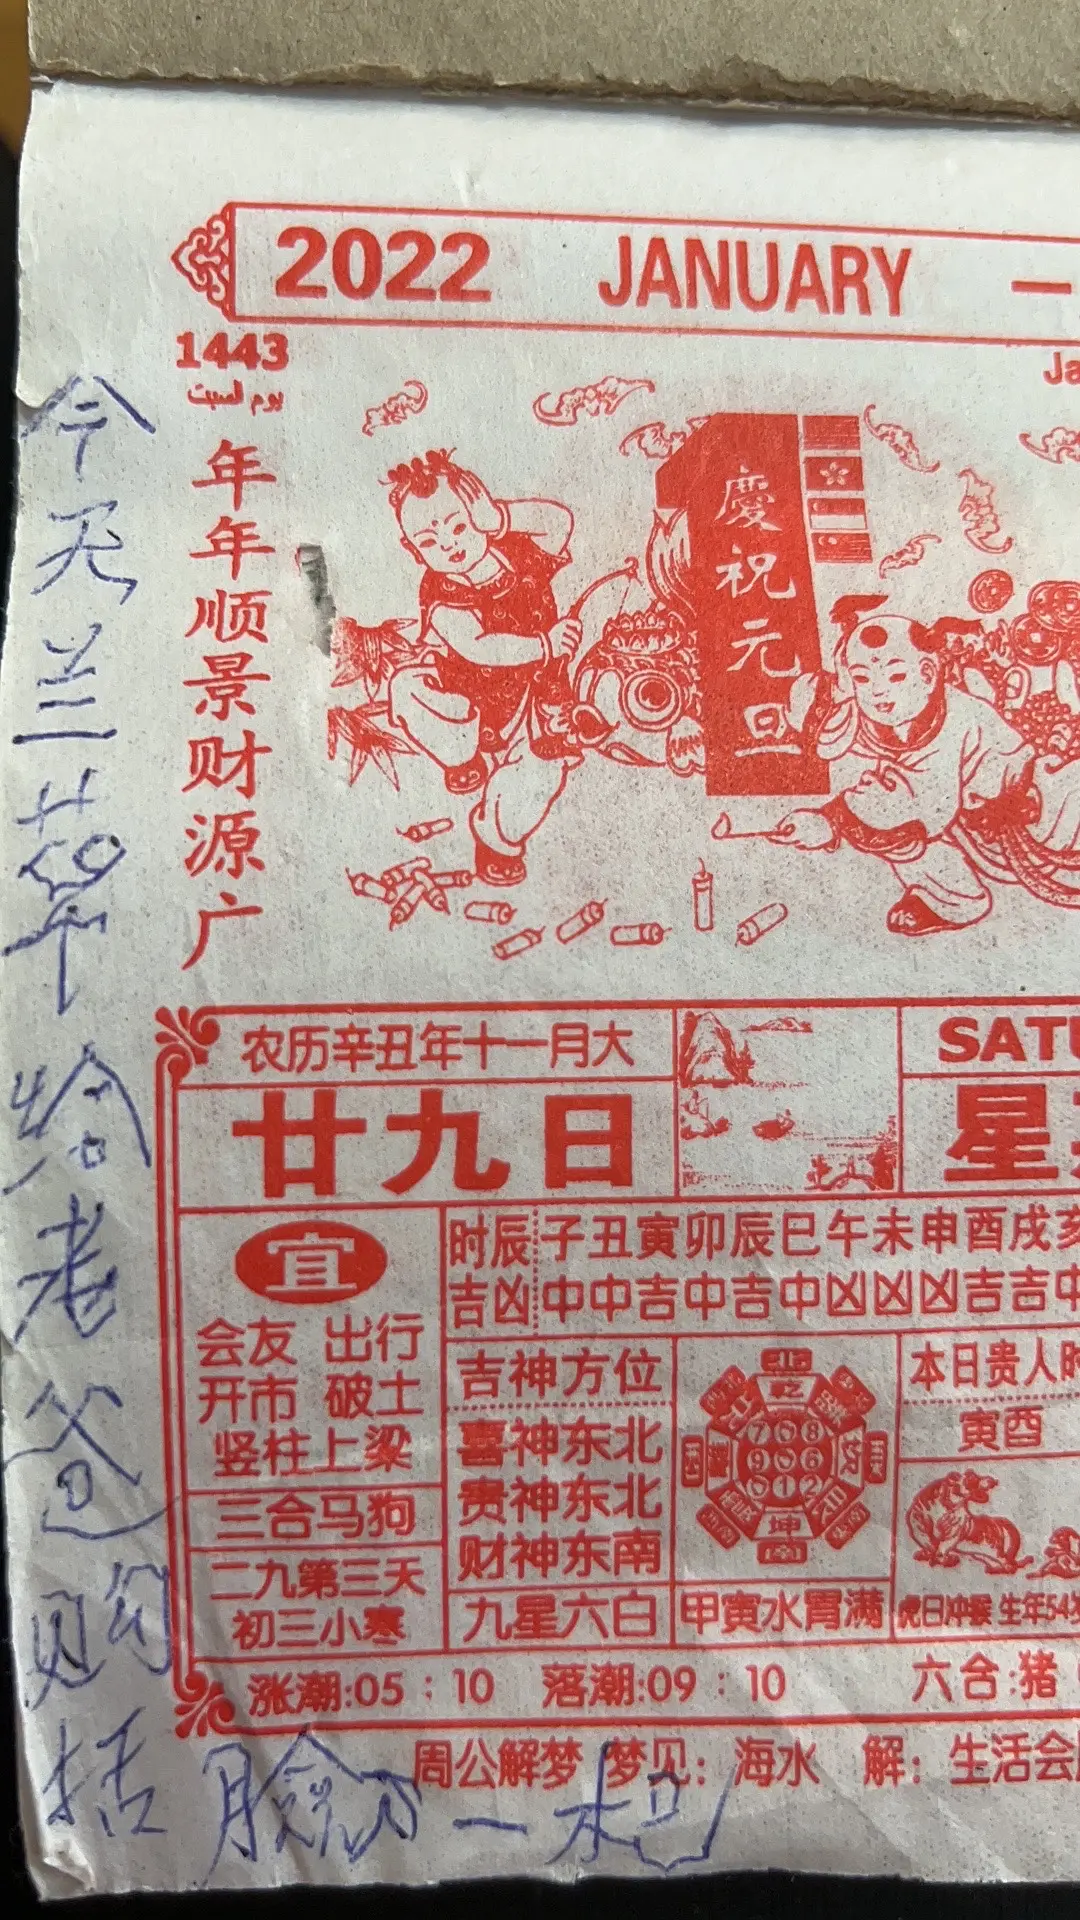 2022 JANUARY 一
1443
يوم السبت
Ja
年年顺景财源广
慶祝元旦
农历辛丑年十一月大
廿九日
SATU
星
宜
会友 出行
开市 破土
竖柱上梁
三合马狗
二九第三天
初三小寒
时辰 子丑寅卯辰巳午未申酉戌亥
吉凶 中中吉中吉中凶凶凶吉吉中
吉神方位
喜神东北
贵神东北
财神东南
九星六白
乾
坤
7 8
9 0 6
0 1 2
甲寅水胃满
本日贵人时
寅酉
虎日冲猴 生年54岁
涨潮:05：10 落潮:09：10
六合:猪
周公解梦 梦见：海水 解：生活会
今天兰
给老爸购
括臉 一起